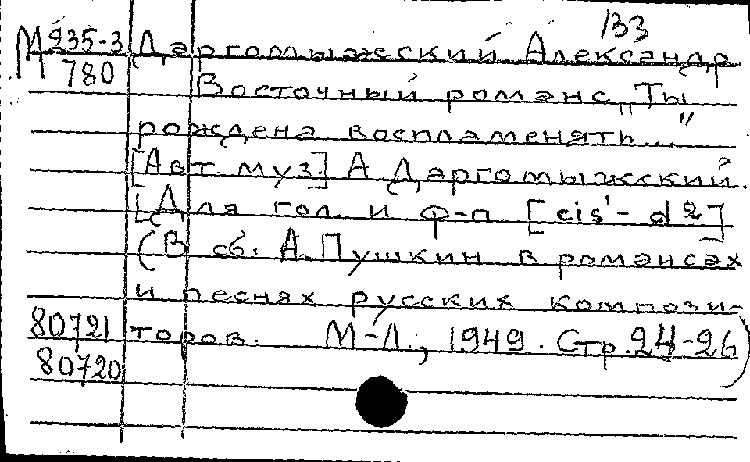 133
М 235-3 Даргомыжский Александр
780 Восточный романс „Ты
рождена воспламенять..."
[Авт. муз.] А Даргомыжский.
[Для гол. и ф-п [cis' - d²]
(В сб. А. Пушкин в романсах
и песнях русских компози-
80721 торов. М-Л., 1949. Стр. 24-26)
80720